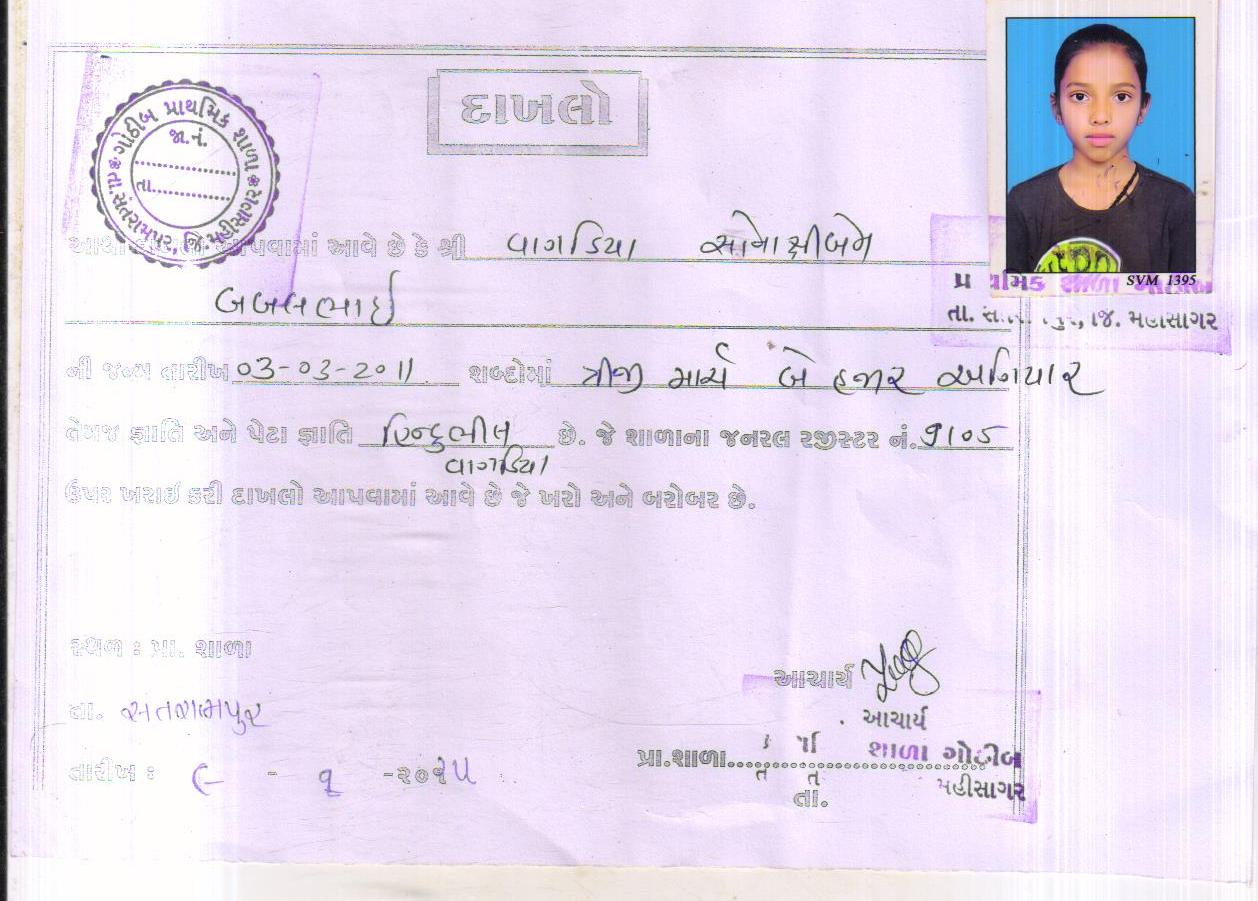 દાખલો
ગોઠીબ પ્રાથમિક શાળા
તા. સંતરામપુર, જિ. મહીસાગર
જા.નં.
તા.
આથી દાખલો આપવામાં આવે છે કે શ્રી વાગડિયા સોનાક્ષીબેન
બાબલભાઈ
SVM 1395
શાળા
તા. જિ. મહીસાગર
ની જન્મ તારીખ 03-03-2011 શબ્દોમાં ત્રીજી માર્ચ બે હજાર અગિયાર
તેમજ જ્ઞાતિ અને પેટા જ્ઞાતિ હિન્દુ ભીલ છે. જે શાળાના જનરલ રજીસ્ટર નં. 9105
વાગડિયા
ઉપર ખરાઈ કરી દાખલો આપવામાં આવે છે જે ખરો અને બરોબર છે.
સ્થળ : પ્રા. શાળા
આચાર્ય
તા. સંતરામપુર
આચાર્ય
પ્રા.શાળા શાળા ગોઠીબ
તારીખ : - ૧ -૨૦૧૫
તા. મહીસાગર